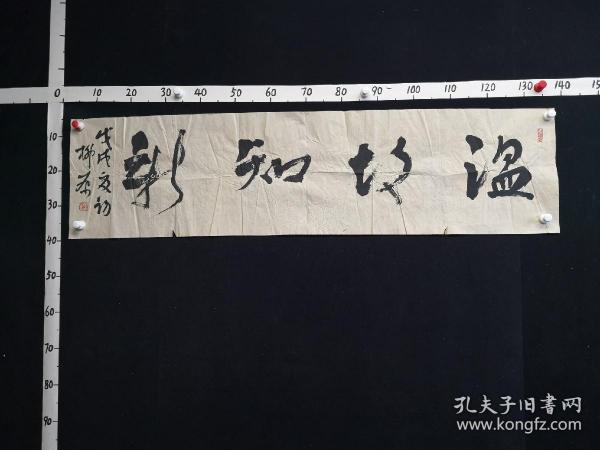 0 10 20 30 40 50 60 70 80 90 100 110 120 130 140 15
10
20
30
40
50
60
70
80
90
温故知新
戊戌夏初
孔夫子旧书网
www.kongfz.com